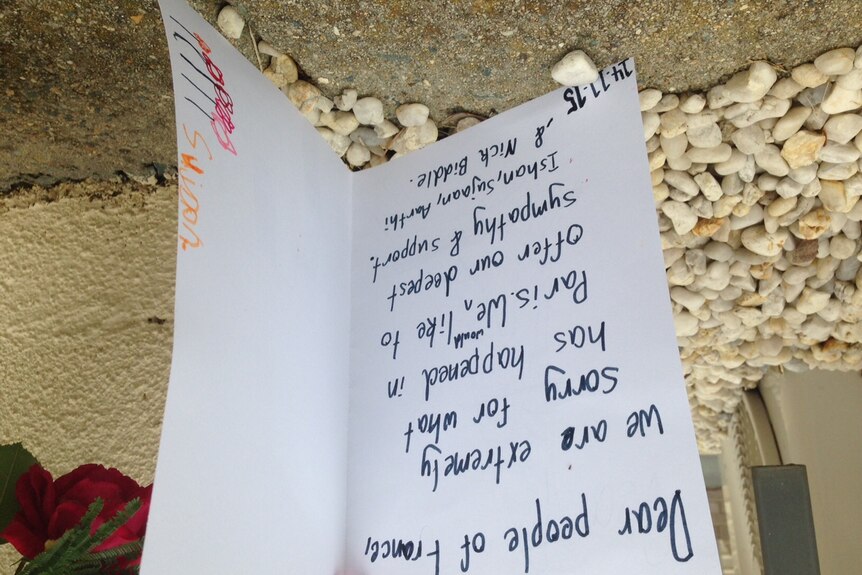 Dear people of France,
We are extremely
sorry for what
has happened in
Paris. We would like to
offer our deepest
sympathy & support.
Ishan, Sujaan, Aarthi
& Nick Biddle.
14.11.15